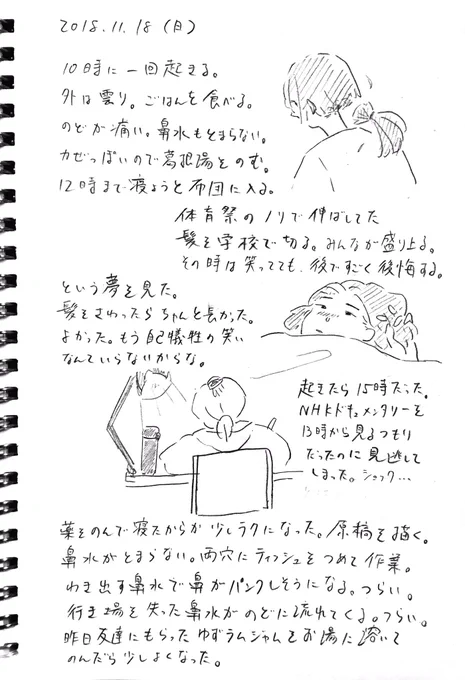 2018.11.18(日)
10時に一回起きる。
外は曇り。ごはんを食べる。
のどが痛い。鼻水もとまらない。
カゼっぽいので葛根湯をのむ。
12時まで寝ようと布団に入る。
体育祭のノリで伸ばしてた
髪を学校で切る。みんなが盛り上る。
その時は笑ってても、後ですごく後悔する。
という夢を見た。
髪をさわったらちゃんと長かった。
よかった。もう自己犠牲の笑い
なんていらないからな。
起きたら15時だった。
NHKドキュメンタリーを
13時から見るつもり
だったのに見逃して
しまった。ショック…
薬をのんで寝たからか少しラクになった。原稿を描く。
鼻水がとまらない。両穴にティッシュをつめて作業。
わき出す鼻水で鼻がパンクしそうになる。つらい。
行き場を失った鼻水がのどに流れてくる。つらい。
昨日友達にもらったゆずラムジャムをお湯に溶いて
のんだら少しよくなった。